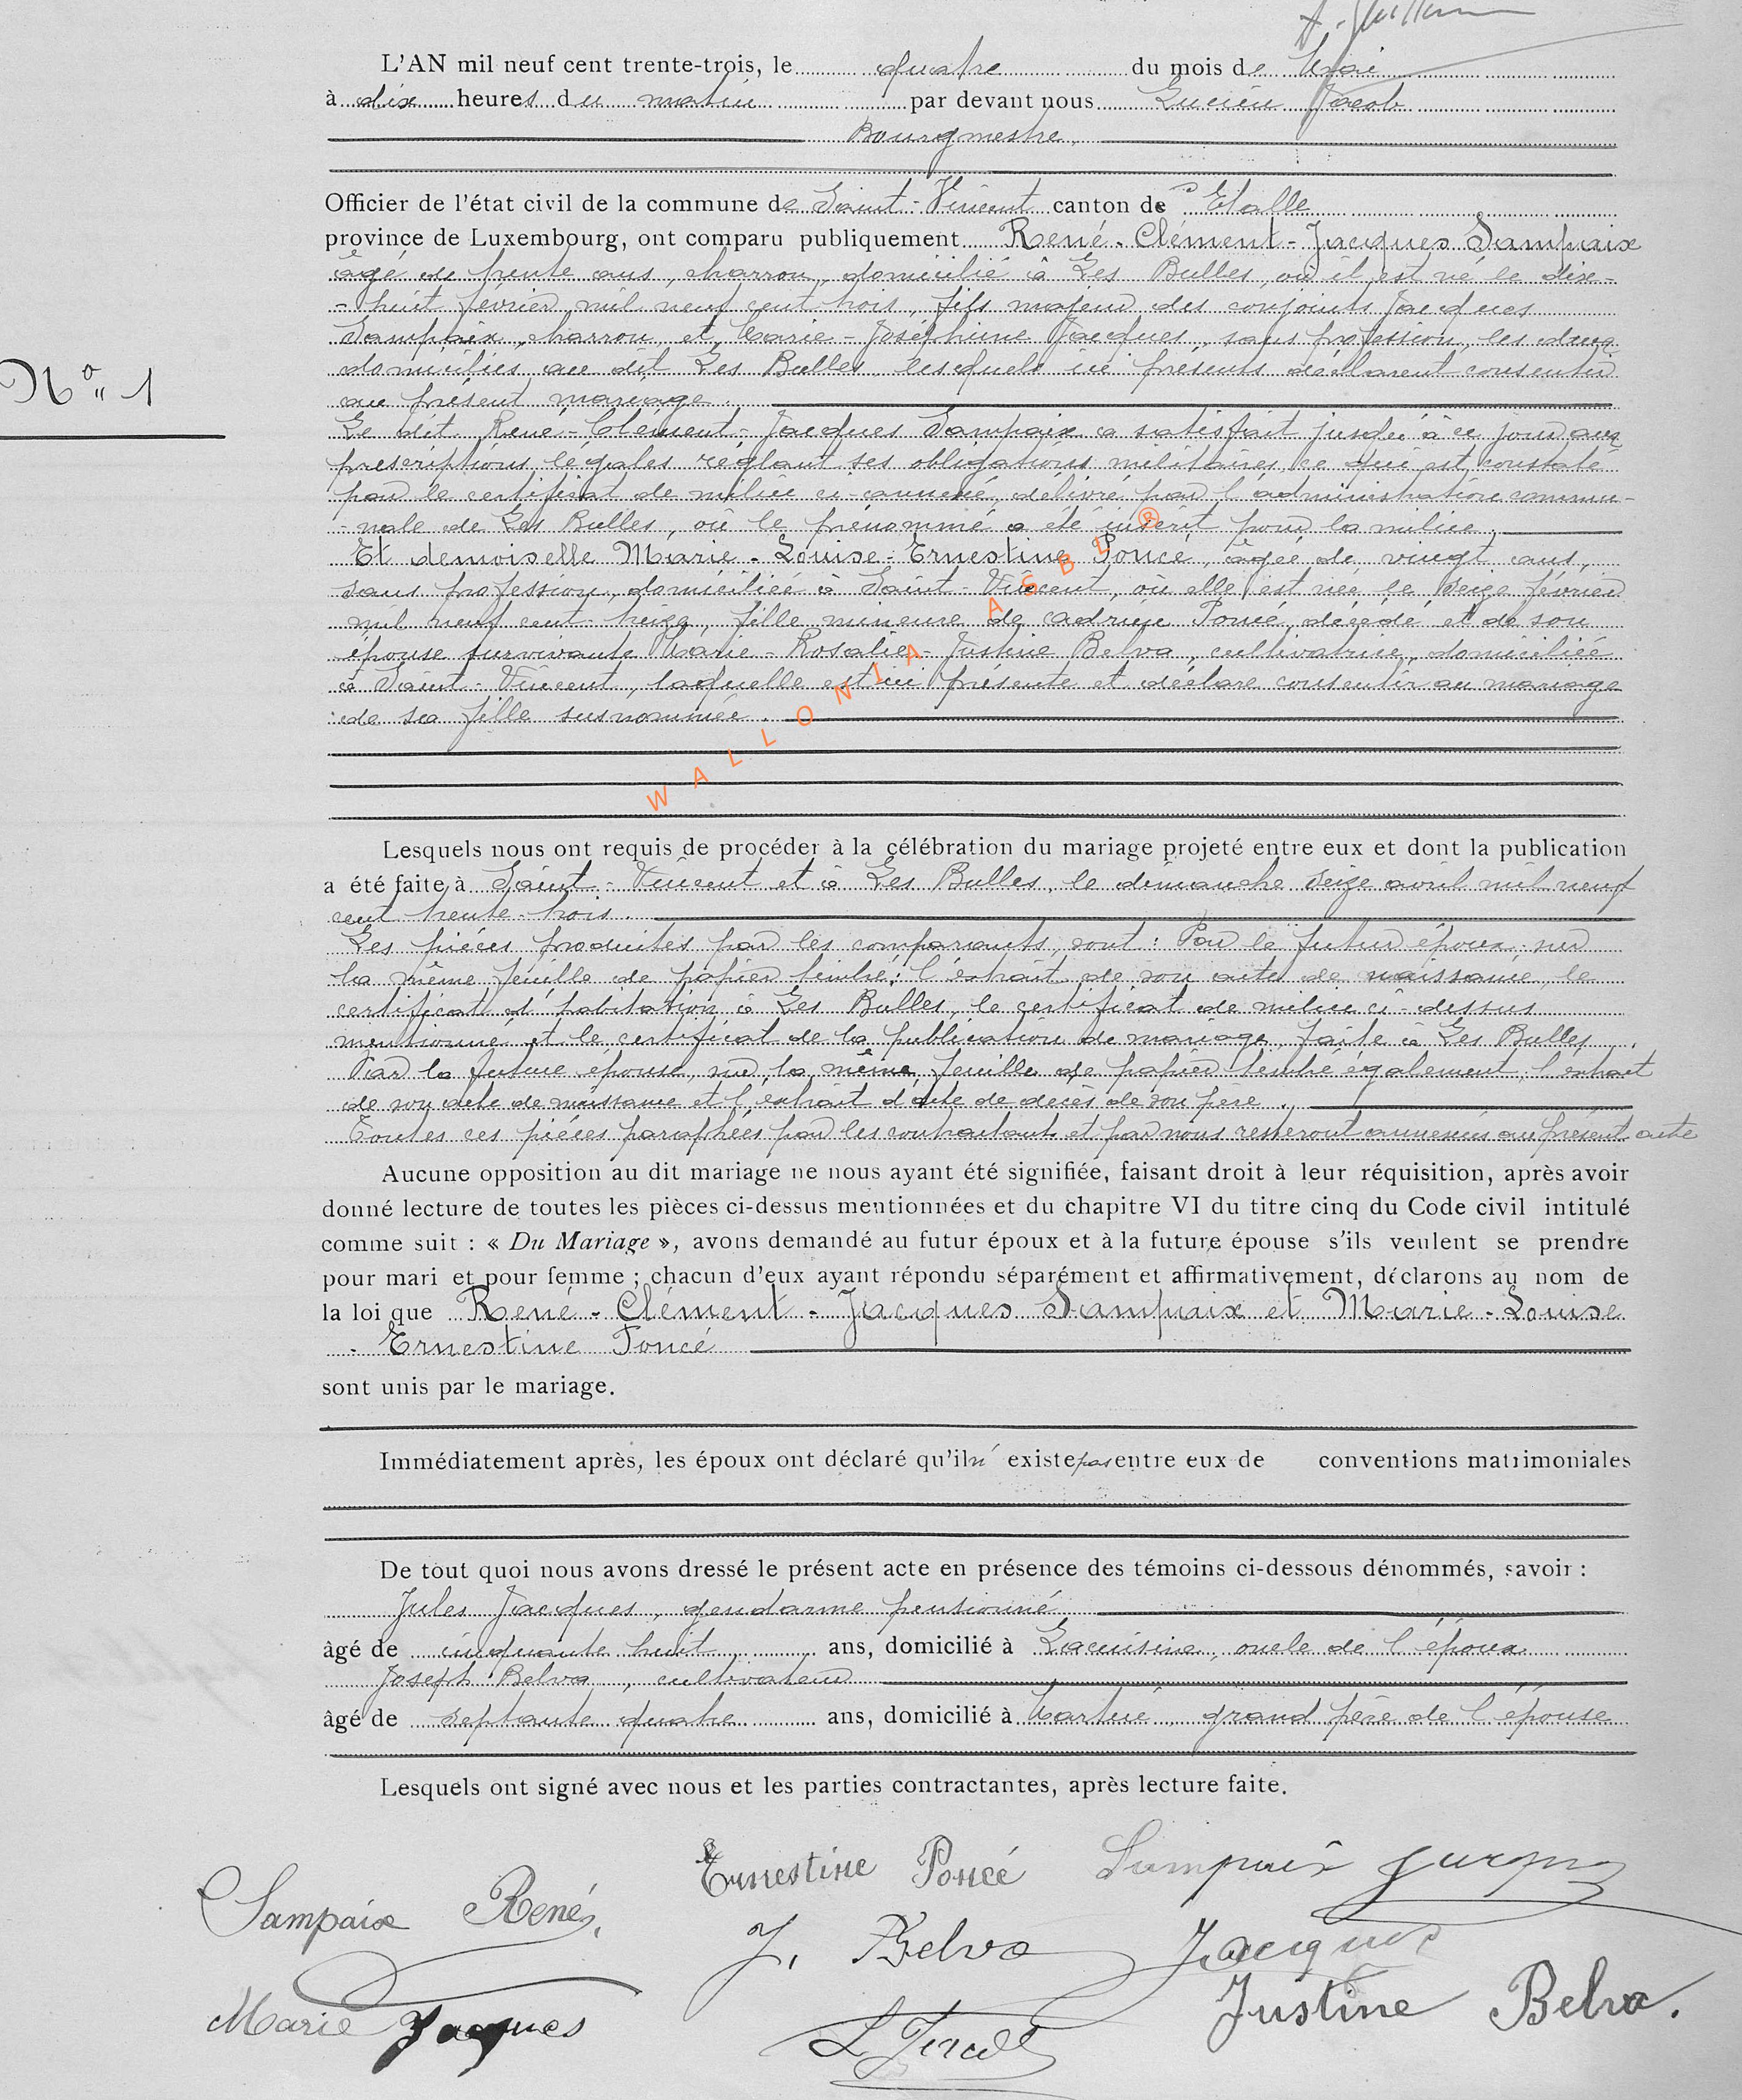 L'AN mil neuf cent trente-trois, le quatre du mois de Mai
à dix heures du matin par devant nous Lucien Jacob
Bourgmestre,
Officier de l'état civil de la commune de Saint-Vincent canton de Etalle
province de Luxembourg, ont comparu publiquement René-Clément-Jacques Sampaix
âgé de trente ans, charron, domicilié à Les Bulles, où il est né le dix-
-huit février mil neuf cent trois, fils majeur des conjoints Jacques
Sampaix, charron, et Marie-Joséphine Jacques, sans profession, les deux
domiciliés au dit Les Bulles, lesquels ici présents déclarent consentir
au présent mariage.
N° 1
Le dit René-Clément-Jacques Sampaix a satisfait jusqu'à ce jour aux
prescriptions légales réglant ses obligations militaires, ce qui est constaté
par le certificat de milice ci-annexé, délivré par l'administration commu-
-nale de Les Bulles, où le prénommé a été inscrit pour la milice.
Et demoiselle Marie-Louise-Ernestine Poncé, âgée de vingt ans,
sans profession, domiciliée à Saint-Vincent, où elle est née le seize février
mil neuf cent treize, fille mineure de Adrien Poncé, décédé et de son
épouse survivante Marie-Rosalie-Justine Belva, cultivatrice, domiciliée
à Saint-Vincent, laquelle est ici présente et déclare consentir au mariage
de sa fille susnommée.
WALLONIA ASBL ®
Lesquels nous ont requis de procéder à la célébration du mariage projeté entre eux et dont la publication
a été faite à Saint-Vincent et à Les Bulles, le dimanche seize avril mil neuf
cent trente-trois.
Les pièces produites par les comparants, sont: Par le futur époux, sur
la même feuille de papier timbré: l'extrait de son acte de naissance, le
certificat d'habitation à Les Bulles, le certificat de milice ci-dessus
mentionné et le certificat de la publication de mariage faite à Les Bulles.
Par la future épouse, sur la même feuille de papier timbré également, l'extrait
de son acte de naissance et l'extrait d'acte de décès de son père.
Toutes ces pièces paraphées par les contractants et par nous resteront annexées au présent acte
Aucune opposition au dit mariage ne nous ayant été signifiée, faisant droit à leur réquisition, après avoir
donné lecture de toutes les pièces ci-dessus mentionnées et du chapitre VI du titre cinq du Code civil intitulé
comme suit : « Du Mariage », avons demandé au futur époux et à la future épouse s'ils veulent se prendre
pour mari et pour femme ; chacun d'eux ayant répondu séparément et affirmativement, déclarons au nom de
la loi que René-Clément-Jacques Sampaix et Marie-Louise
-Ernestine Poncé
sont unis par le mariage.
Immédiatement après, les époux ont déclaré qu'il n'existe pas entre eux de conventions matrimoniales
De tout quoi nous avons dressé le présent acte en présence des témoins ci-dessous dénommés, savoir :
Jules Jacques, gendarme pensionné
âgé de cinquante huit ans, domicilié à Lacuisine, oncle de l'époux
Joseph Belva, cultivateur
âgé de septante quatre ans, domicilié à Martué, grand père de l'épouse
Lesquels ont signé avec nous et les parties contractantes, après lecture faite.
Sampaix René
Ernestine Poncé
Sampaix Jacques
J. Belva
Jacques
Marie Jacques
L Jacob
Justine Belva.